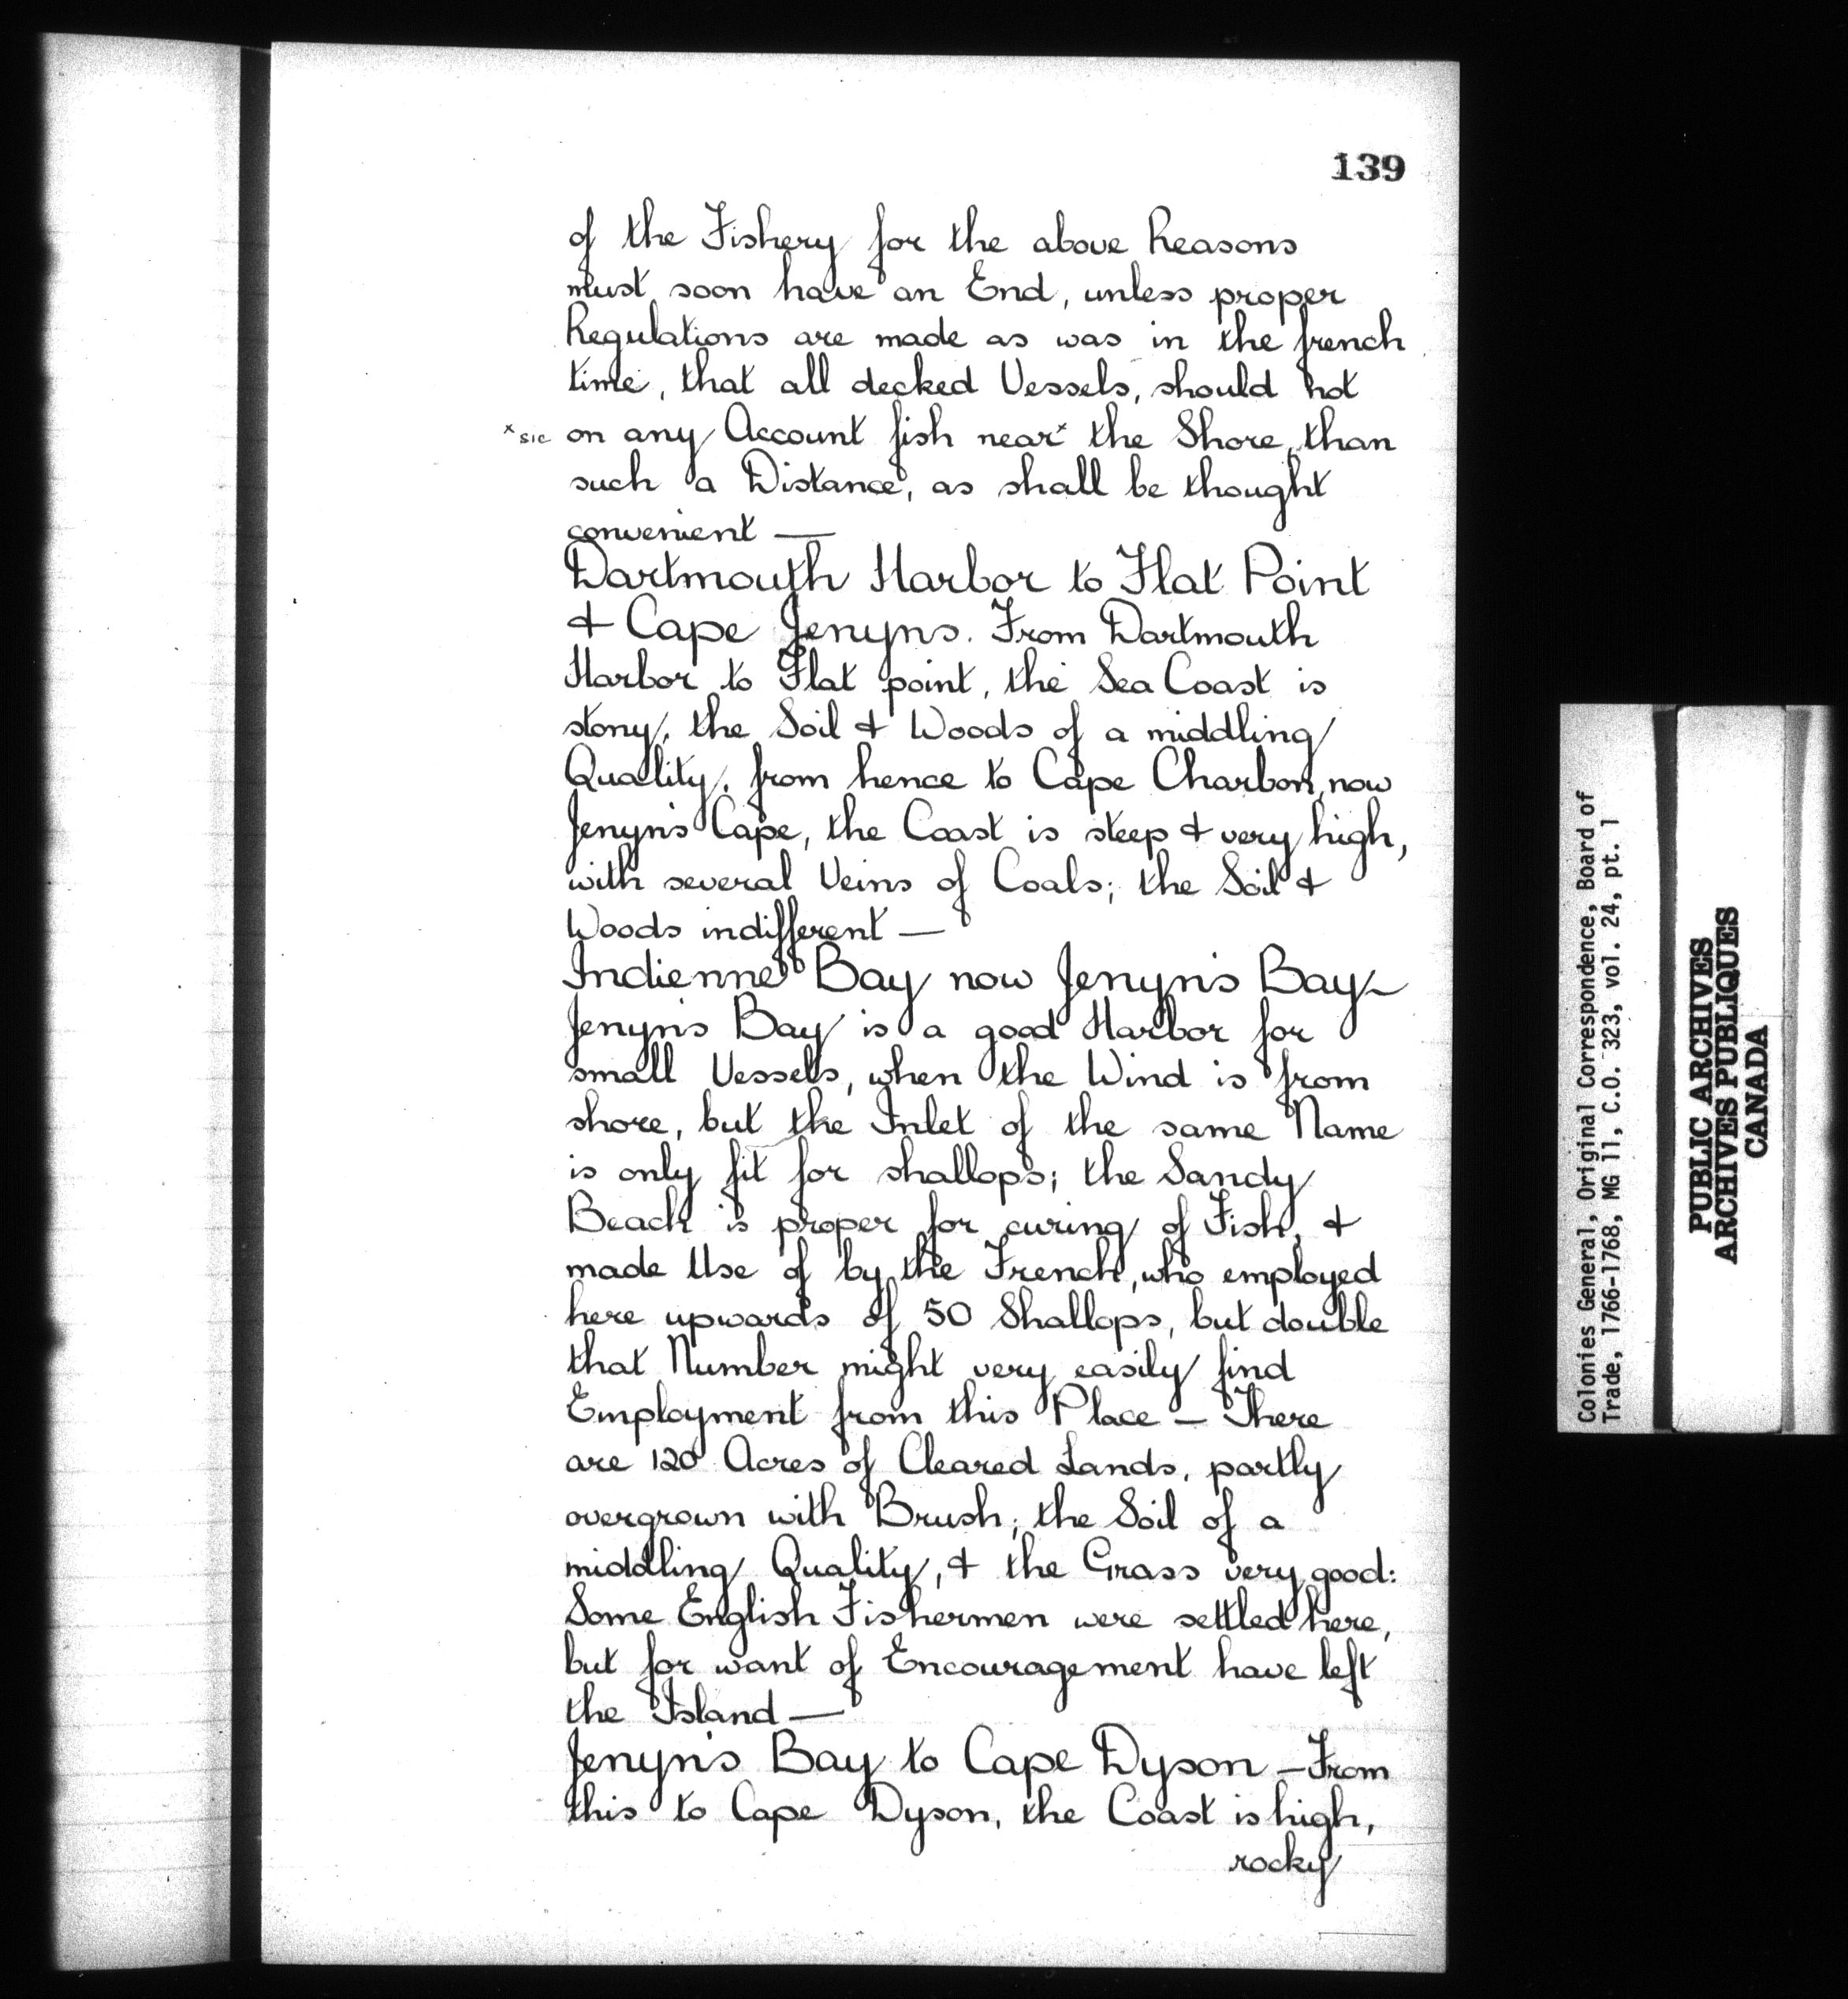 139
of the Fishery for the above Reasons
must soon have an End, unless proper
Regulations are made as was in the french
time, that all decked Vessels, should not
x sic on any Account fish near x the Shore, than
such a Distance, as shall be thought
convenient —
Dartmouth Harbor to Flat Point
& Cape Jenyns. From Dartmouth
Harbor to Flat point, the Sea Coast is
stony, the Soil & Woods of a middling
Quality, from hence to Cape Charbon, now
Jenyn's Cape, the Coast is steep & very high,
with several Veins of Coals; the Soil &
Woods indifferent —
Indienne Bay now Jenyn's Bay—
Jenyn's Bay is a good Harbor for
small Vessels, when the Wind is from
shore, but the Inlet of the same Name
is only fit for shallops; the Sandy
Beach is proper for curing of Fish, &
made Use of by the French, who employed
here upwards of 50 Shallops, but double
that Number might very easily find
Employment from this Place — There
are 120 Acres of Cleared Lands, partly
overgrown with Brush; the Soil of a
middling Quality, & the Grass very good:
Some English Fishermen were settled here,
but for want of Encouragement have left
the Island —
Jenyn's Bay to Cape Dyson — From
this to Cape Dyson, the Coast is high,
rocky
Colonies General, Original Correspondence, Board of
Trade, 1766-1768, MG 11, C.O. 323, vol. 24, pt. 1
PUBLIC ARCHIVES
ARCHIVES PUBLIQUES
CANADA